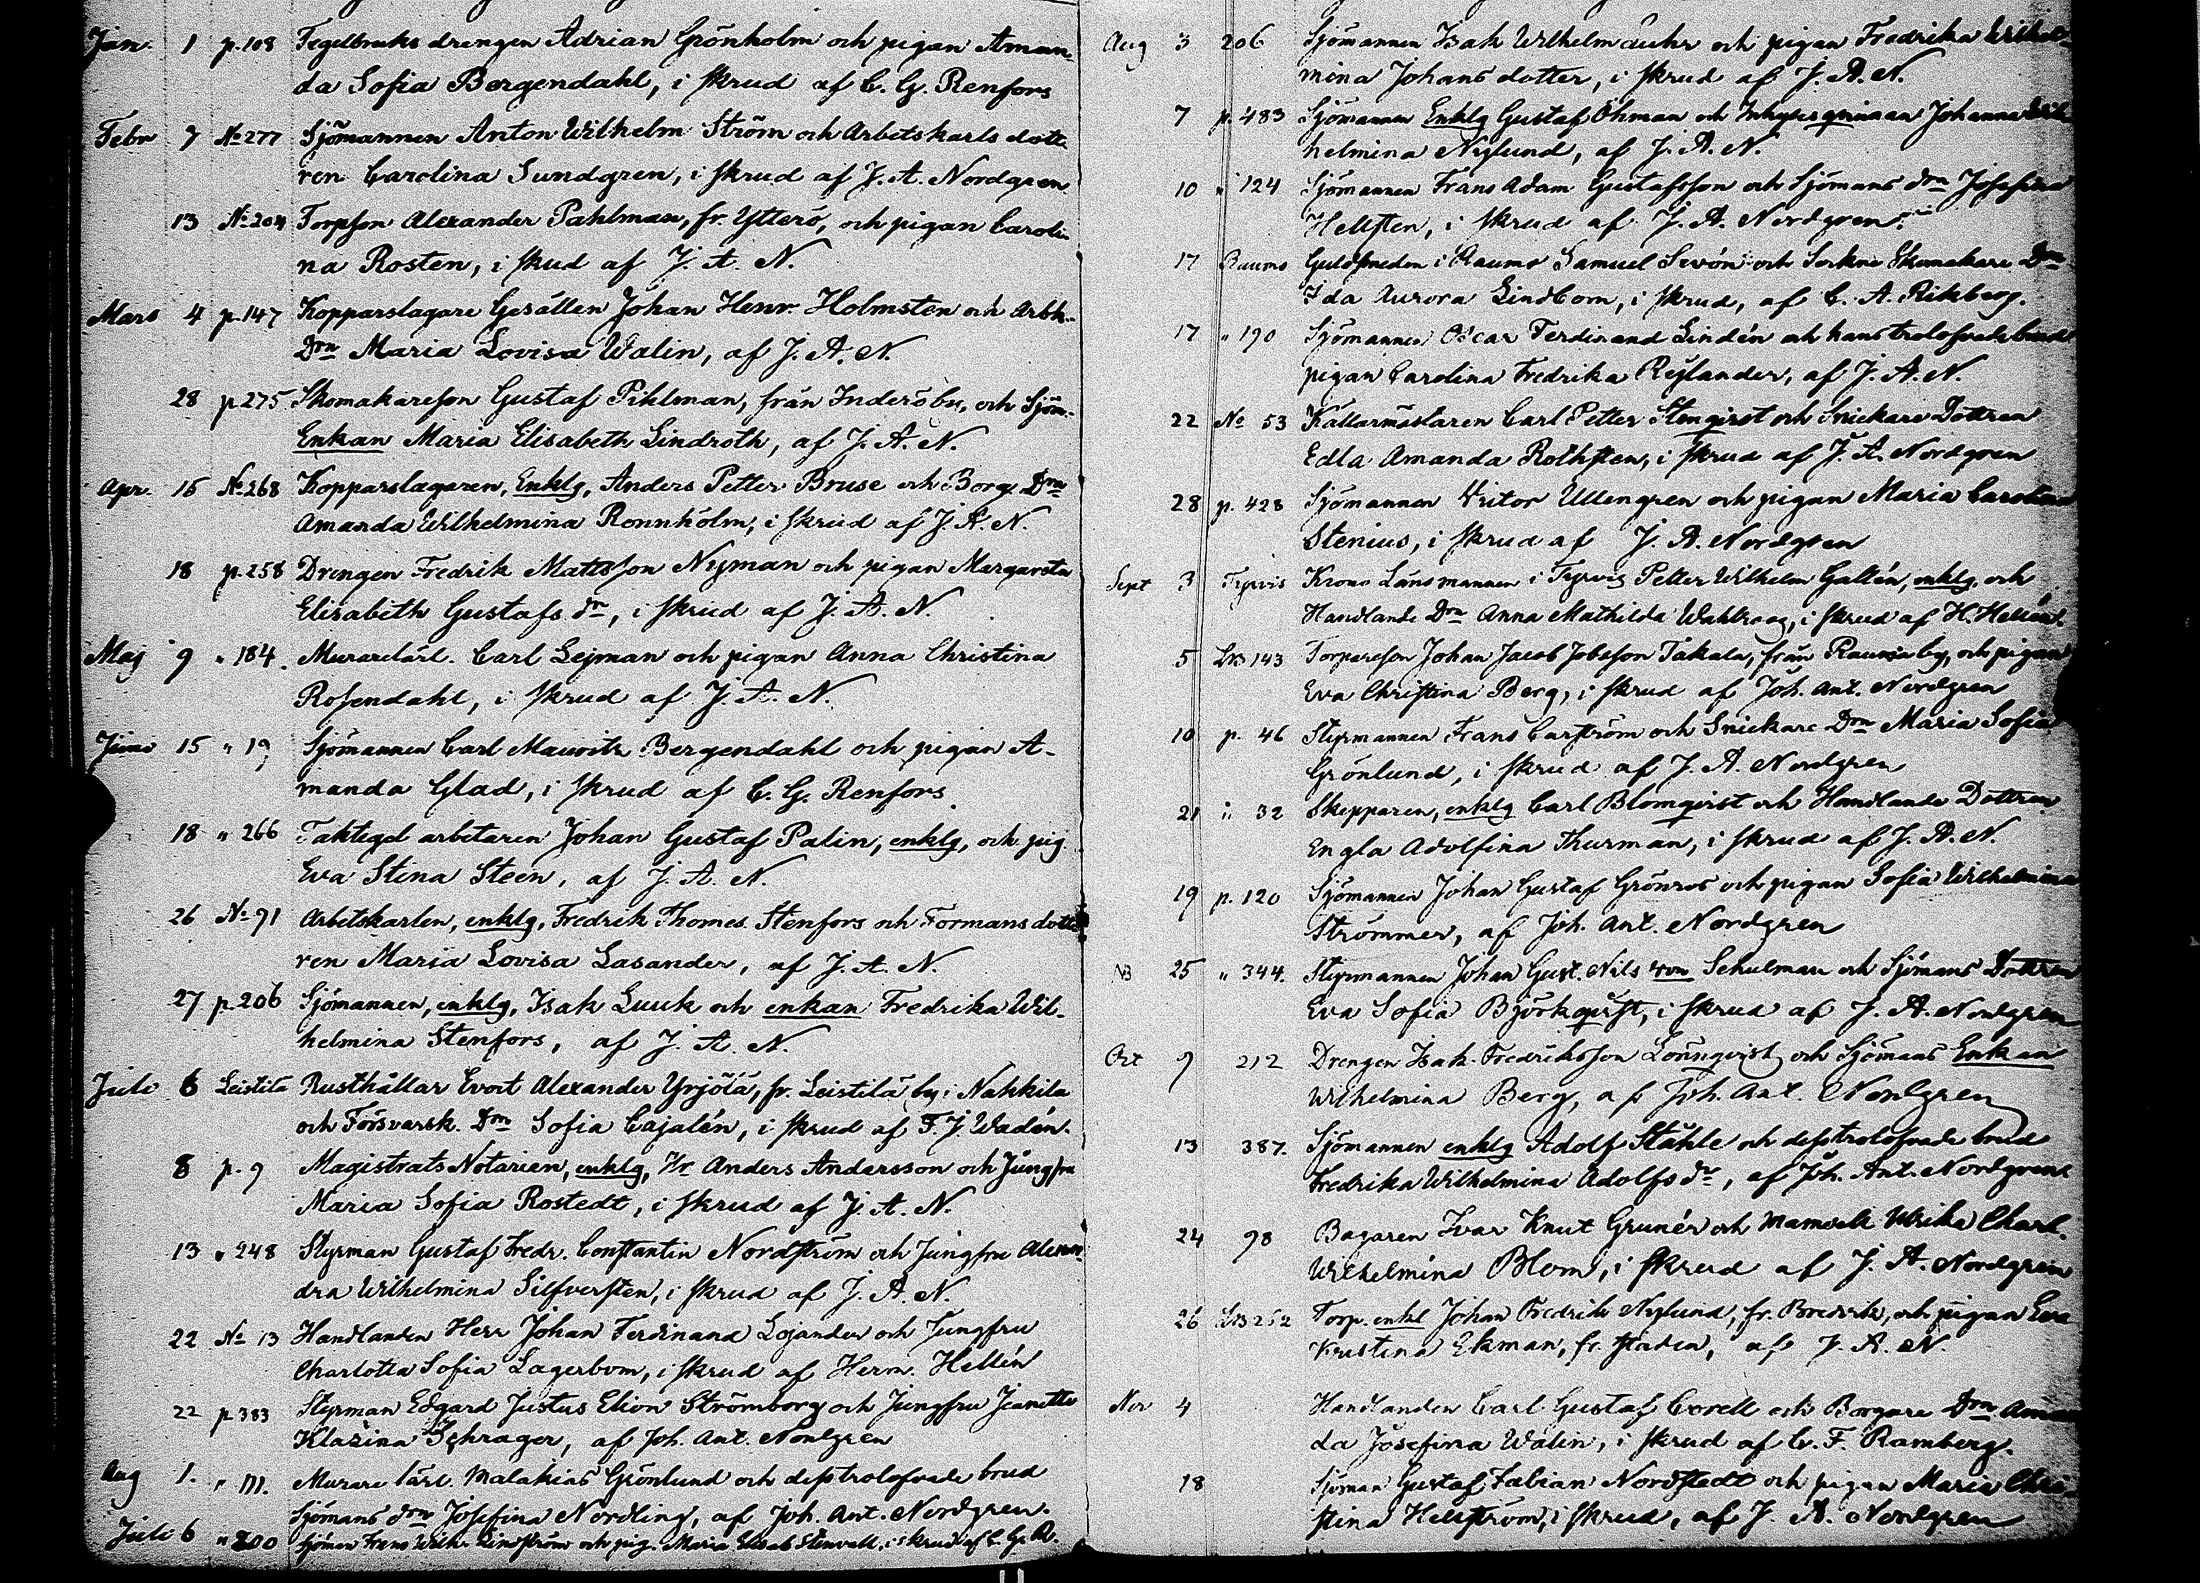 Jan. 1 p.108 Tegelbruks drengen Adrian Grönholm och pigan Aman-
da Sofia Bergendahl, i skrud af C. G. Renfors
Febr 7 No 277 Sjömannen Anton Wilhelm Ström och Arbetskarls dott
ren Carolina Sundgren, i skrud af J. A. Nordgren
13 No 204 Torpson Alexander Pahlman, fr. Ytterö, och pigan Caroli
na Rosten, i skud af J. A. N.
Mars 4 p.147 Kopparslagare Gesällen Johan Henr. Holmsten och Arbk.
Drn Maria Lovisa Walin, af J. A. N.
28 p 275 Skomakareson Gustaf Pihlman, från Inderöby, och Sjöm.
Enkan Maria Elisabeth Lindroth, af J. A. N.
Apr. 15 No 268 Kopparslagaren, Enklg, Anders Petter Bruse och Borg. Drn
Amanda Wilhelmina Rönnholm, i skrud af J. A. N.
18 p.258 Drengen Fredrik Mattsson Nyman och pigan Margareta
Elisabeth Gustafs dr, i skrud af J. A. N.
Maj 9 " 184. Murarelärl. Carl Lejman och pigan Anna Christina
Rosendahl, i skrud af J. A. N.
Juni 15 " 19 Sjömannen Carl Mauritz Bergendahl och pigan A-
manda Glad, i skrud af C. G. Renfors.
18 " 266 Taktegel arbetaren Johan Gustaf Palin, enklg, och pig.
Eva Stina Steen, af J. A. N.
26 No 91 Arbetskarlen, enklg, Fredrik Thomes. Stenfors och Formans dott
ren Maria Lovisa Lasander, af J. A. N.
27 p.206 Sjömannen, enklg, Isak Luuk och enkan Fredrika Wil-
helmina Stenfors, af J. A. N.
Juli 6 Leistila Rusthållar Evert Alexander Yrjölä, fr. Leistilä by i Nakkila
och Försvarsk. Drn Sofia Cajalén, i skrud af F. J. Wadén.
8 p. 9 Magistrats Notarien, enklg, Hr Anders Andersson och Jungfru
Maria Sofia Rostedt, i skrud af J. A. N.
13 " 248 Styrman Gustaf Fredr. Constantin Nordström och Jungfru Alexan-
dra Wilhelmina Silfversten, i skrud af J. A. N.
22 No 13 Handlanden Herr Johan Ferdinand Lojander och Jungfru
Charlotta Sofia Lagerbom, i skrud af Herm. Hellén
22 p 383 Styrman Edgard Justus Elion Strömborg och Jungfru Jeanette
Klazina Schrager, af Joh. Ant. Nordgren
Aug 1. " 111. Murare lärl. Malakias Grönlund och dess trolofvade brud
Sjömans drn Josefina Nordling, af Joh. Ant. Nordgren.
Juli 6 " 200 Sjöman Frans Wilh. Lindström och pig. Maria Elisab Stenvall, i skrud af C. G. R.
Aug 3 206 Sjömannen Isak Wilhelm Luhr och pigan Fredrika Wilhel-
mina Johans dotter, i skrud af J. A. N.
7 p. 483 Sjömannen Enklg Gustaf Öhman och Inhyses qvinnan Johanna Wil
helmina Nylund, af J. A. N.
10 " 124 Sjömannen Frans Adam Gustafsson och Sjömans drn Josefina
Hellsten, i skrud af J. A. Nordgren.
17 Raumo Guldsmeden i Raumo Samuel Sevón och Sockne Skomakare Drn
Ida Aurora Lindbom, i skrud, af C. A. Rikberg.
17 " 190 Sjömannen Oscar Ferdinand Lindén och hans trolofvade brud
pigan Carolina Fredrika Rylander, af J. A. N.
22 No 53 Källarmästaren Carl Petter Stenqvist och Snickare Dottren
Edla Amanda Rothsten, i skrud af J. A. Nordgren
28 p. 428 Sjömannen Victor Ullengren och pigan Maria Carolina
Stenius, i skrud af J. A. Nordgren
Sept 3 Tyrvis Krono Länsmannen i Tyrvis Petter Wilhelm Gallén, enklg, och
Handlande Drn Anna Mathilda Wahlroos, i skrud af H. Hellén.
5 LB 143 Torpareson Johan Jacob Jobsson Takala, från Raumaby, och pigan
Eva Christina Berg, i skrud af Joh. Ant. Nordgren
10 p. 46 Styrmannen Frans Carström och Snickare Drn Maria Sofia
Grönlund, i skrud af J. A. Nordgren
21 " 32 Skepparen, enklg Carl Blomqvist och Handlande Dottren
Engla Adolfina Thurman, i skrud af J. A. N.
19 p. 120 Sjömannen Johan Gustaf Grönros och pigan Sofia Wilhelmina
Strömmer, af Joh. Ant. Nordgren
NB 25 " 344. Styrmannen Johan Gust. Nils von Schulman och Sjömans Dottren
Eva Sofia Björkqvist, i skrud af J. A. Nordgren
Oct 9 212 Drengen Isak Fredriksson Lönnqvist och Sjömans Enkan
Wilhelmina Berg, af Joh. Ant. Nordgren
13 387. Sjömannen enklg Adolf Ståhle och dess trolofvade brud
Fredrika Wilhelmina Adolfs dr, af Joh. Ant. Nordgren
24 98 Bagaren Ivar Knut Grunér och Mamsell Ulrika Charl.
Wilhelmina Blom, i skrud af J. A. Nordgren
26 LB 252 Torp. enkl Johan Fredrik Nylund, fr. Bredvik, och pigan Eva
Kristina Ekman, fr. staden, af J. A. N.
Nov 4 Handlanden Carl Gustaf Corell och Borgare Drn Aman
da Josefina Walin, i skrud af C. F. Ramberg.
18 Sjöman Gustaf Fabian Nordstedt och pigan Maria Chri-
stina Hellström, i skrud, af J. A. Nordgren